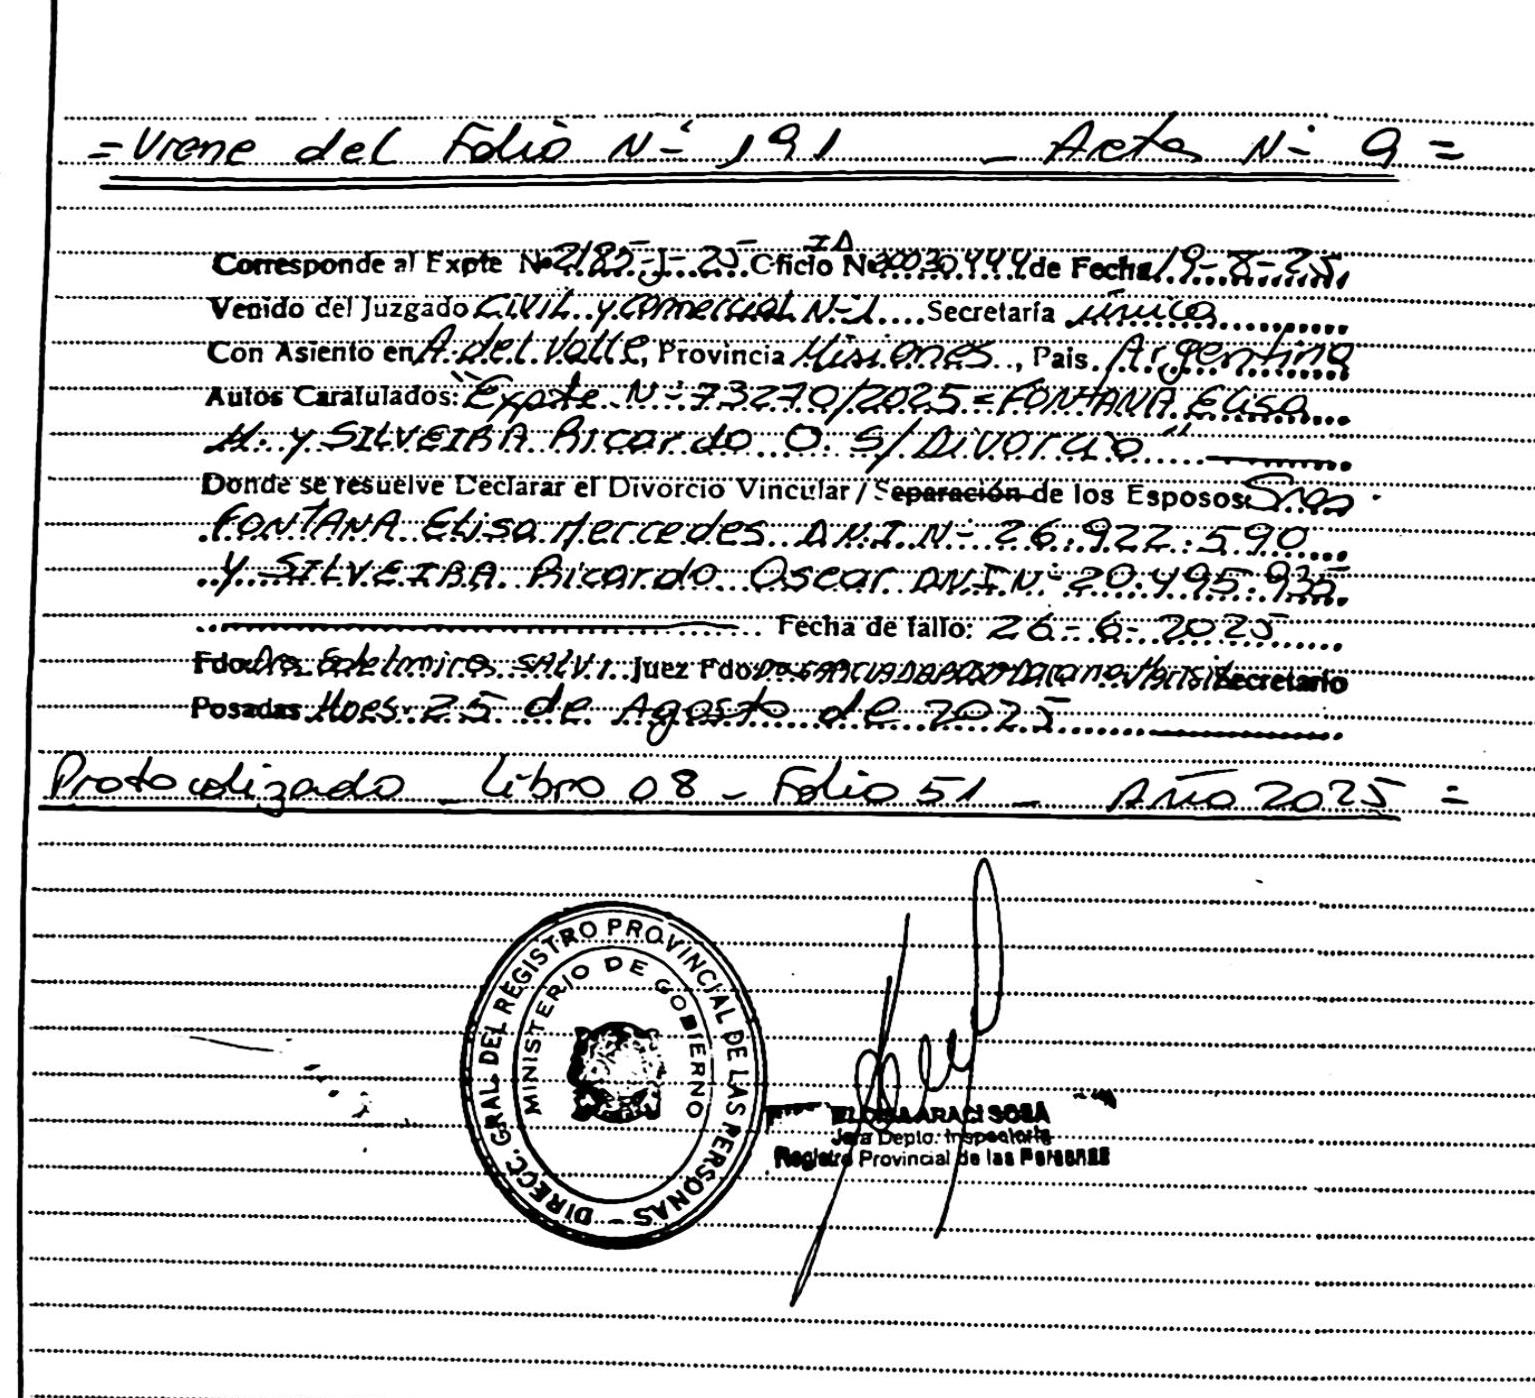 = Viene del Folio Nº 191 - Acta Nº 9 =
Corresponde al Expte Nº 2185-J-25 Oficio Nº ID 20030444 de Fecha 19-8-25
Venido del Juzgado Civil y Comercial Nº 1 Secretaría única
Con Asiento en A. del Valle, Provincia Misiones, País Argentina
Autos Caratulados: "Expte Nº 73270/2025 = FONTANA Elisa
M. y SILVEIRA Ricardo O. s/ Divorcio"
Donde se resuelve Declarar el Divorcio Vincular / Separación de los Esposos Sres.
FONTANA Elisa Mercedes D.N.I. Nº 26.922.590
y SILVEIRA Ricardo Oscar DNI Nº 20.495.935
Fecha de fallo: 26-6-2025
Fdo. Edelmira SALVI Juez Fdo. Secretario
Posadas Mnes 25 de Agosto de 2025
Protocolizado - Libro 08 - Folio 51 - Año 2025 =
DIRECC. GRAL. DEL REGISTRO PROVINCIAL DE LAS PERSONAS -
MINISTERIO DE GOBIERNO
ARACI SOSA
Jefa Depto. Inspectoría
Registro Provincial de las Personas